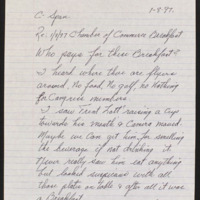 1-8-97.
C-Span
Re. 1/8/97 Chamber of Commerce Breakfast
Who pays for these Breakfast?
I heard where there are flyers
around. No food, No golf, no Nothing
for Congress members.
I saw Trent Lott raising a cup
towards his mouth & Camera moved.
Maybe we can get him for smelling
the beverage if not drinking it.
Never really saw him eat anything
but looked suspicious with all
those plates on table & after all it was
a Breakfast.